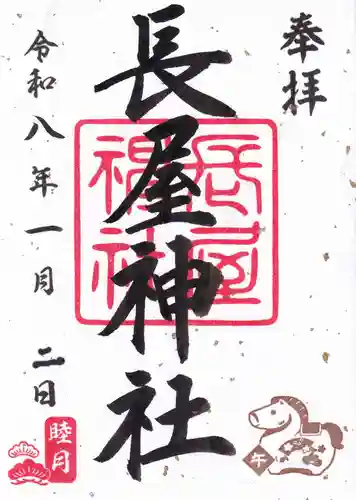 奉拝
長屋神社
長屋神社
令和八年一月二日
睦月
午